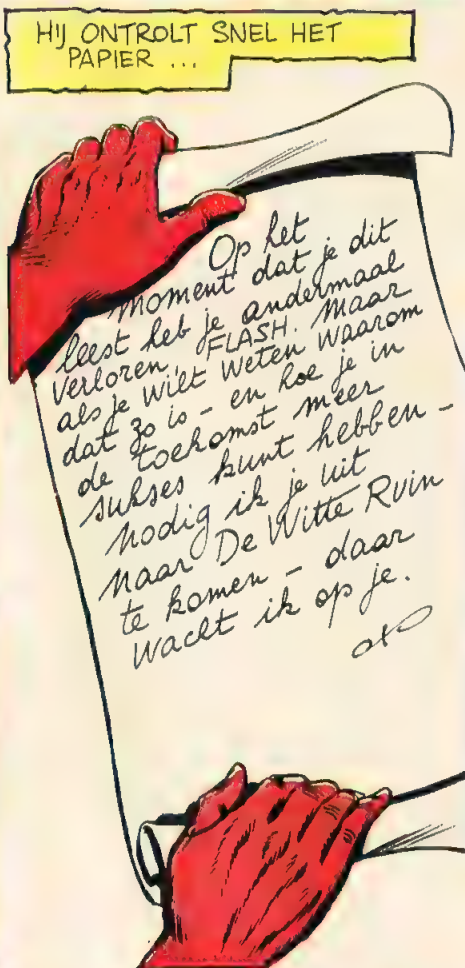 HIJ ONTROLT SNEL HET
PAPIER ...
Op het
moment dat je dit
leest heb je andermaal
verloren, FLASH. Maar
als je wilt weten waarom
dat zo is - en hoe je in
de toekomst meer
sukses kunt hebben -
nodig ik je uit
naar De Witte Ruin
te komen - daar
wacht ik op je.